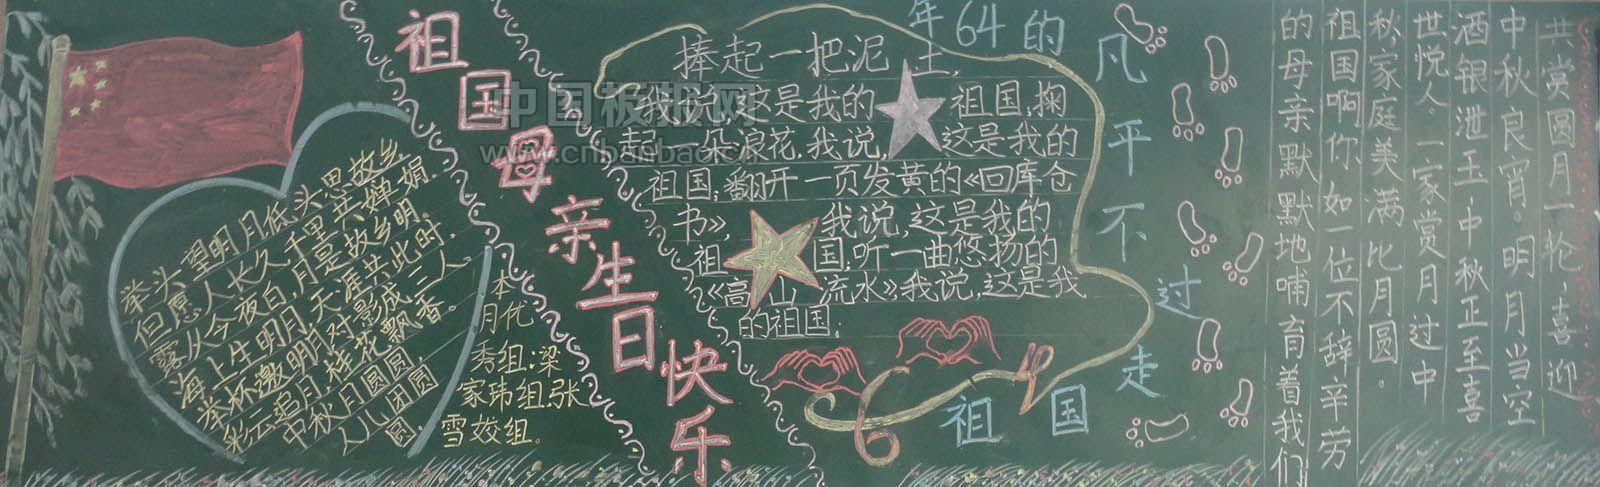 祖国母亲生日快乐
举头望明月,低头思故乡
但愿人长久,千里共婵娟.
露从今夜白,月是故乡明.
海上生明月,天涯共此时.
举杯邀明月,对影成三人.
彩云追月,桂花飘香。
中秋月圆圆,
人儿团圆
圆.
本
月代
秀组:梁
家玮组,张
雪姣组。
捧起一把泥土,
我说,这是我的祖国,掬
起一朵浪花,我说,这是我的
祖国,翻开一页发黄的《四库仓
书》,我说,这是我的
祖国;听一曲悠扬的
《高山流水》我说,这是我
的祖国;
祖国走过不平凡的64年
64
共赏圆月一轮,喜迎
中秋良宵。明月当空
洒银泄玉,中秋正至喜
世悦人。一家赏月过中
秋,家庭美满比月圆。
祖国啊你如一位不辞辛劳
的母亲默默地哺育着我们
中国板报网
www.cnbanbao.cn